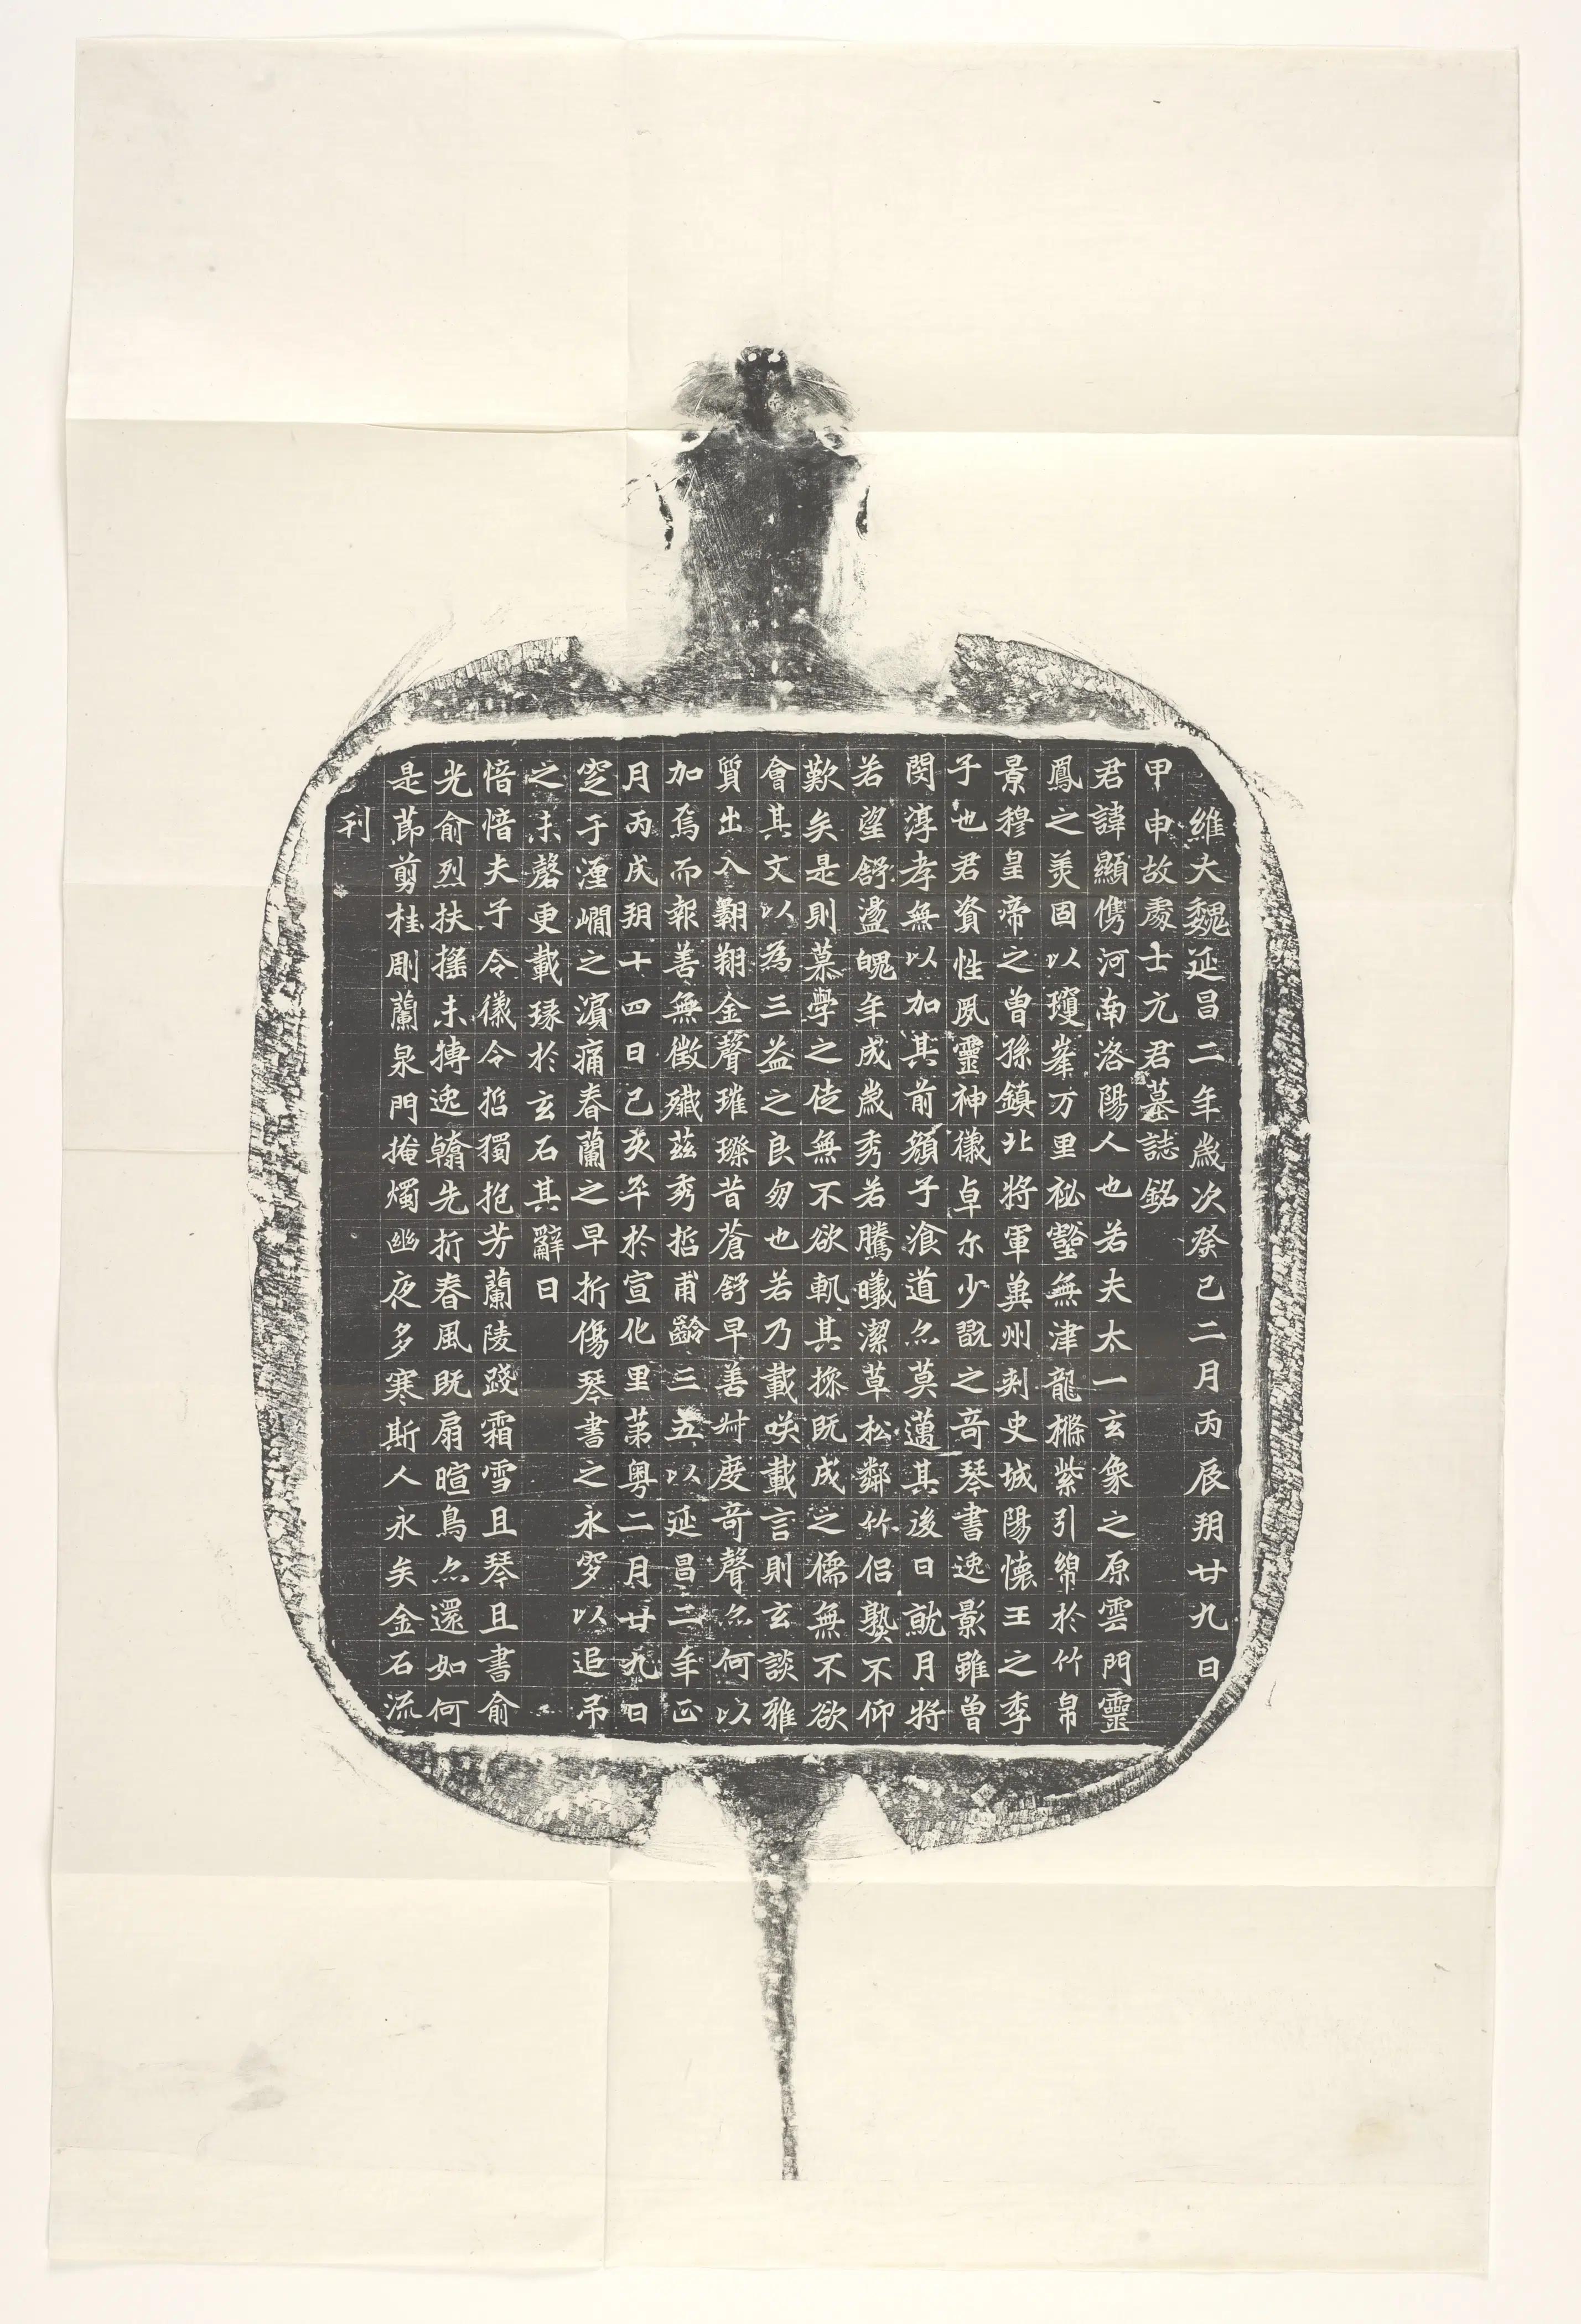 維大魏延昌二年歲次癸巳二月丙辰朔廿九日
甲申故處士元君墓誌銘
君諱顯儁河南洛陽人也若夫太一玄象之原雲門靈
鳳之美固以瓊峯万里祕壑無津龍樤紫引綿於竹帛
景穆皇帝之曾孫鎮北將軍兾州刾史城陽懷王之季
子也君資性夙靈神儀卓尒少翫之奇琴書逸影雖曾
閔淳孝無以加其前顏子飡道亦莫邁其後日就月將
若望舒盪魄年成歲秀若騰曦潔草松鄰竹侶孰不仰
歎矣是則慕學之徒無不欲軌其操既成之儒無不欲
會其文以為三益之良朋也若乃載咲載言則玄談雅
質出入翱翔金聲璀璨昔蒼舒早善叔度奇聲亦何以
加焉而報善無徵殲茲秀哲甫齡三五以延昌二年正
月丙戌朔十四日己亥卒於宣化里第粵二月廿九日
窆于瀍澗之濱痛春蘭之早折傷琴書之永穸以追吊
之未磬更載瑑於玄石其辭曰
愔愔夫子令儀令哲獨抱芳蘭陵踐霜雪且琴且書俞
光俞烈扶搖未摶逸翰先折春風既扇暄鳥亦還如何
是莭剪桂彫蘭泉門掩燭幽夜多寒斯人永矣金石流
刊